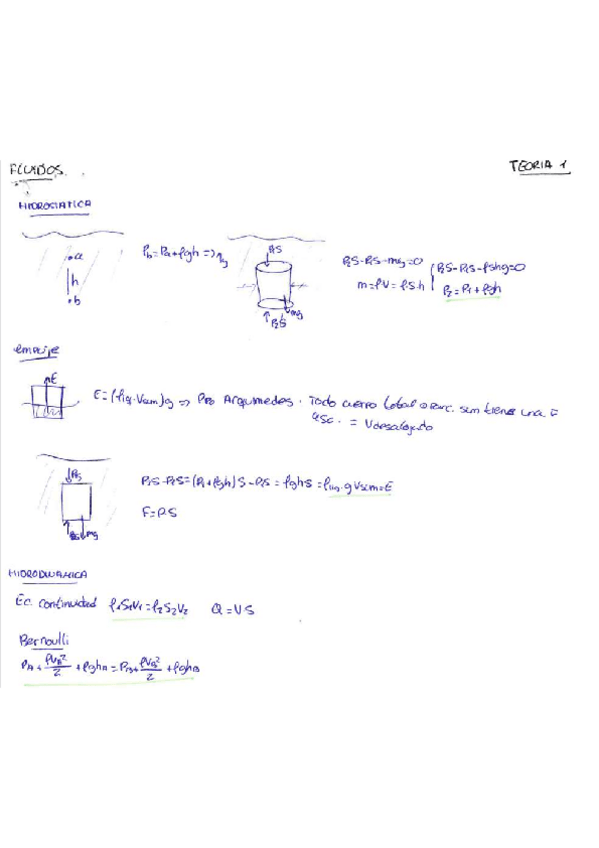 FLUIDOS. TEORIA 1
HIDROSTATICA
a
h
b
Pb=Pa+ρgh =>
P1S
P2S
mg
P2S-P1S-mg=0
m=ρV=ρSh
P2S-P1S-ρShg=0
P2=P1+ρgh
empuje
E
E=(ρliq·Vsum)g => Arquimedes. Todo cuerpo total o parc. sum tiene una F
asc. = Vdesalojado
P1S
P2S
mg
P2S-P1S=(P1+ρgh)S-P1S=ρghS=ρliq·gVsum=E
F=P.S
HIDRODINAMICA
Ec. continuidad ρ1S1V1=ρ2S2V2 Q=VS
Bernoulli
PA+ρVA²/2+ρghA=PB+ρVB²/2+ρghB